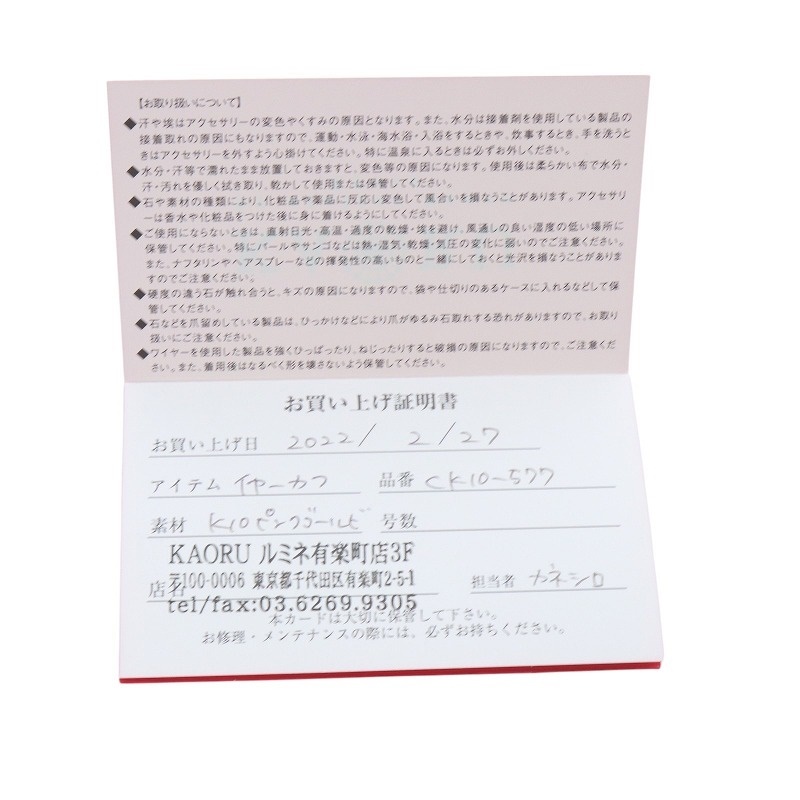 【お取り扱いについて】
◆汗や埃はアクセサリーの変色やくすみの原因となります。また、水分は接着剤を使用している製品の
接着取れの原因にもなりますので、運動・水泳・海水浴・入浴をするときや、炊事するとき、手を洗うと
きはアクセサリーを外すよう心掛けてください。特に温泉に入るときは必ずお外しください。
◆水分・汗等で濡れたまま放置しておきますと、変色等の原因になります。使用後は柔らかい布で水分・
汗・汚れを優しく拭き取り、乾かして使用または保管してください。
◆石や素材の種類により、化粧品や薬品に反応し変色して風合いを損なうことがあります。アクセサリ
ーは香水や化粧品をつけた後に身に着けるようにしてください。
◆ご使用にならないときは、直射日光・高温・過度の乾燥・埃を避け、風通しの良い湿度の低い場所に
保管してください。特にパールやサンゴなどは熱・湿気・乾燥・気圧の変化に弱いのでご注意ください。
また、ナフタリンやヘアスプレーなどの揮発性の高いものと一緒にしておくと光沢を損なうことがありま
すのでご注意ください。
◆硬度の違う石が触れ合うと、キズの原因になりますので、袋や仕切りのあるケースに入れるなどして保
管してください。
◆石などを爪留めしている製品は、ひっかけなどにより爪がゆるみ石取れする恐れがありますので、お取り
扱いにご注意ください。
◆ワイヤーを使用した製品を強くひっぱったり、ねじったりすると破損の原因になりますので、ご注意くだ
さい。また、着用後はなるべく形を壊さないよう保管してください。
お買い上げ証明書
お買い上げ日 2022/ 2/27
アイテム イヤーカフ 品番 CK10-577
素材 K10ピンクゴールド 号数
KAORU ルミネ有楽町店3F
〒100-0006 東京都千代田区有楽町2-5-1
店名 担当者 カネシロ
tel/fax:03.6269.9305
本カードは大切に保管して下さい。
お修理・メンテナンスの際には、必ずお持ちください。